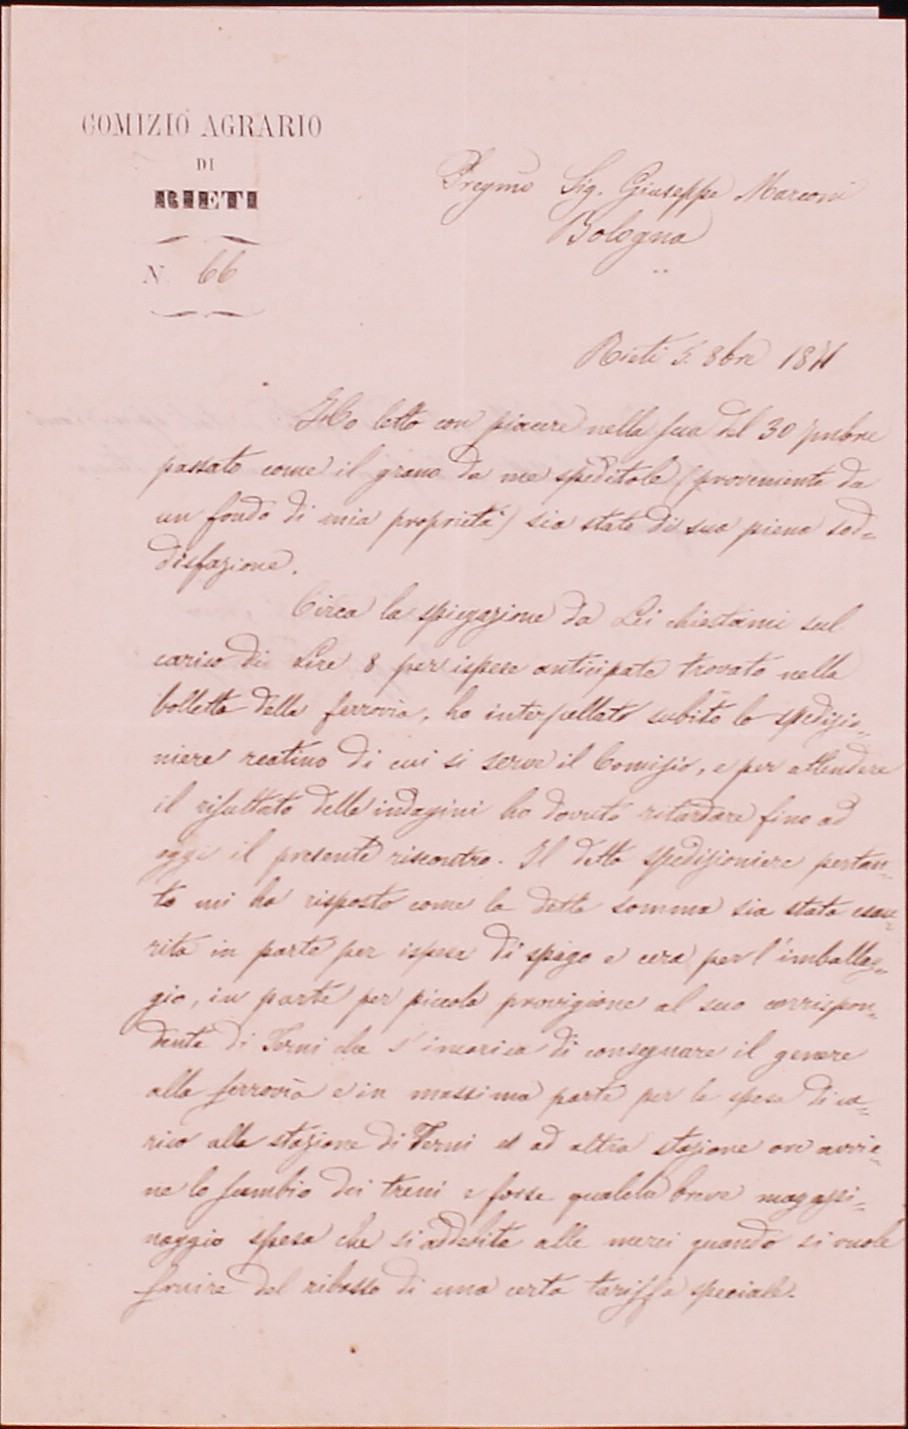 COMIZIO AGRARIO
DI
RIETI
N. 66
Pregmo Sig. Giuseppe Marconi
Bologna
Rieti 5. 8bre 1871
Ho letto con piacere nella sua del 30
passato come il grano da me speditole (proveniente da
un fondo di mia proprietà) sia stato di sua piena sod-
disfazione.
Circa la spiegazione da Lei chiestami sul
carico di Lire 8 per ispese anticipate trovato nella
bolletta della ferrovia, ho interpellato subito lo spedizio-
niere reatino di cui si serve il Comizio, e per attendere
il risultato delle indagini ho dovuto ritardare fino ad
oggi il presente riscontro. Il detto spedizioniere pertan-
to mi ha risposto come la detta somma sia stata esau-
rita in parte per ispesa di spago e cera per l'imballag-
gio, in parte per piccola provigione al suo corrispon-
dente di Terni che s'incarica di consegnare il genere
alla ferrovia e in massima parte per le spese di ca-
rico alla stazione di Terni e ad altra stazione ove avvie-
ne lo scambio dei treni e forse qualche breve magazzi-
naggio spesa che si addebita alle merci quando si vuole
fruire del ribasso di una certa tariffa speciale.